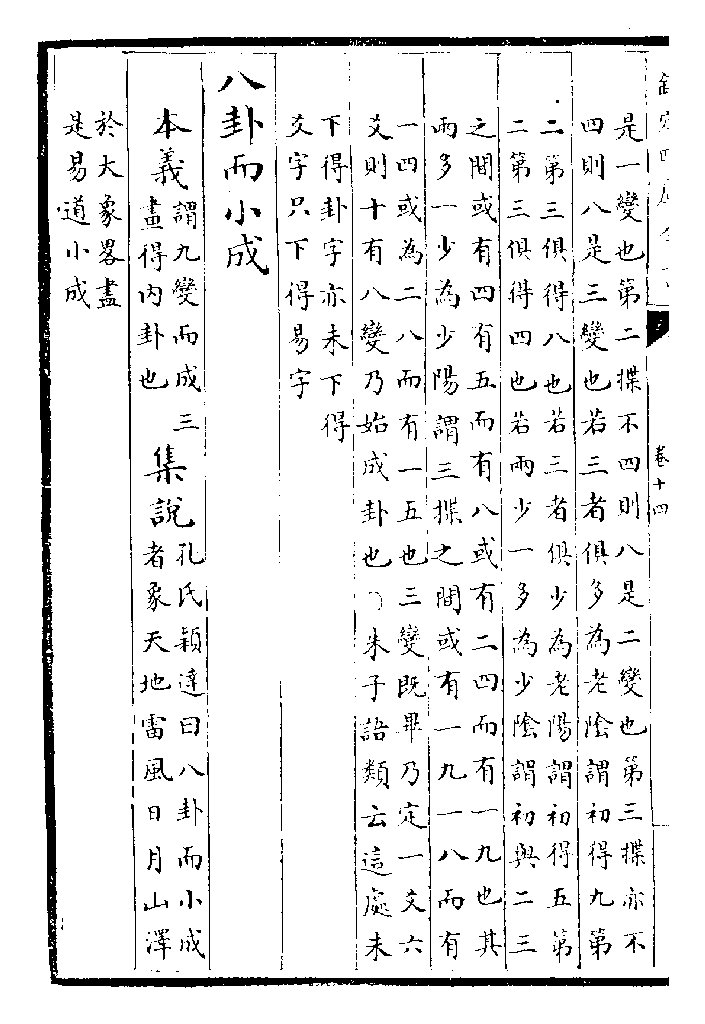 卷十四
是一變也第二揲不四則八是二變也第三揲亦不
四則八是三變也若三者俱多為老陰謂初得九第
二第三俱得八也若三者俱少為老陽謂初得五第
二第三俱得四也若兩少一多為少陰謂初與二三
之間或有四有五而有八或有二四而有一九也其
兩多一少為少陽謂三揲之間或有一九一八而有
一四或為二八而有一五也三變既畢乃定一爻六
爻則十有八變乃始成卦也○朱子語類云這處未
下得卦字亦未下得
爻字只下得易字
八卦而小成
本義
謂九變而成三
畫得內卦也
集說
孔氏穎達曰八卦而小成
者象天地雷風日月山澤
於大象畧盡
是易道小成